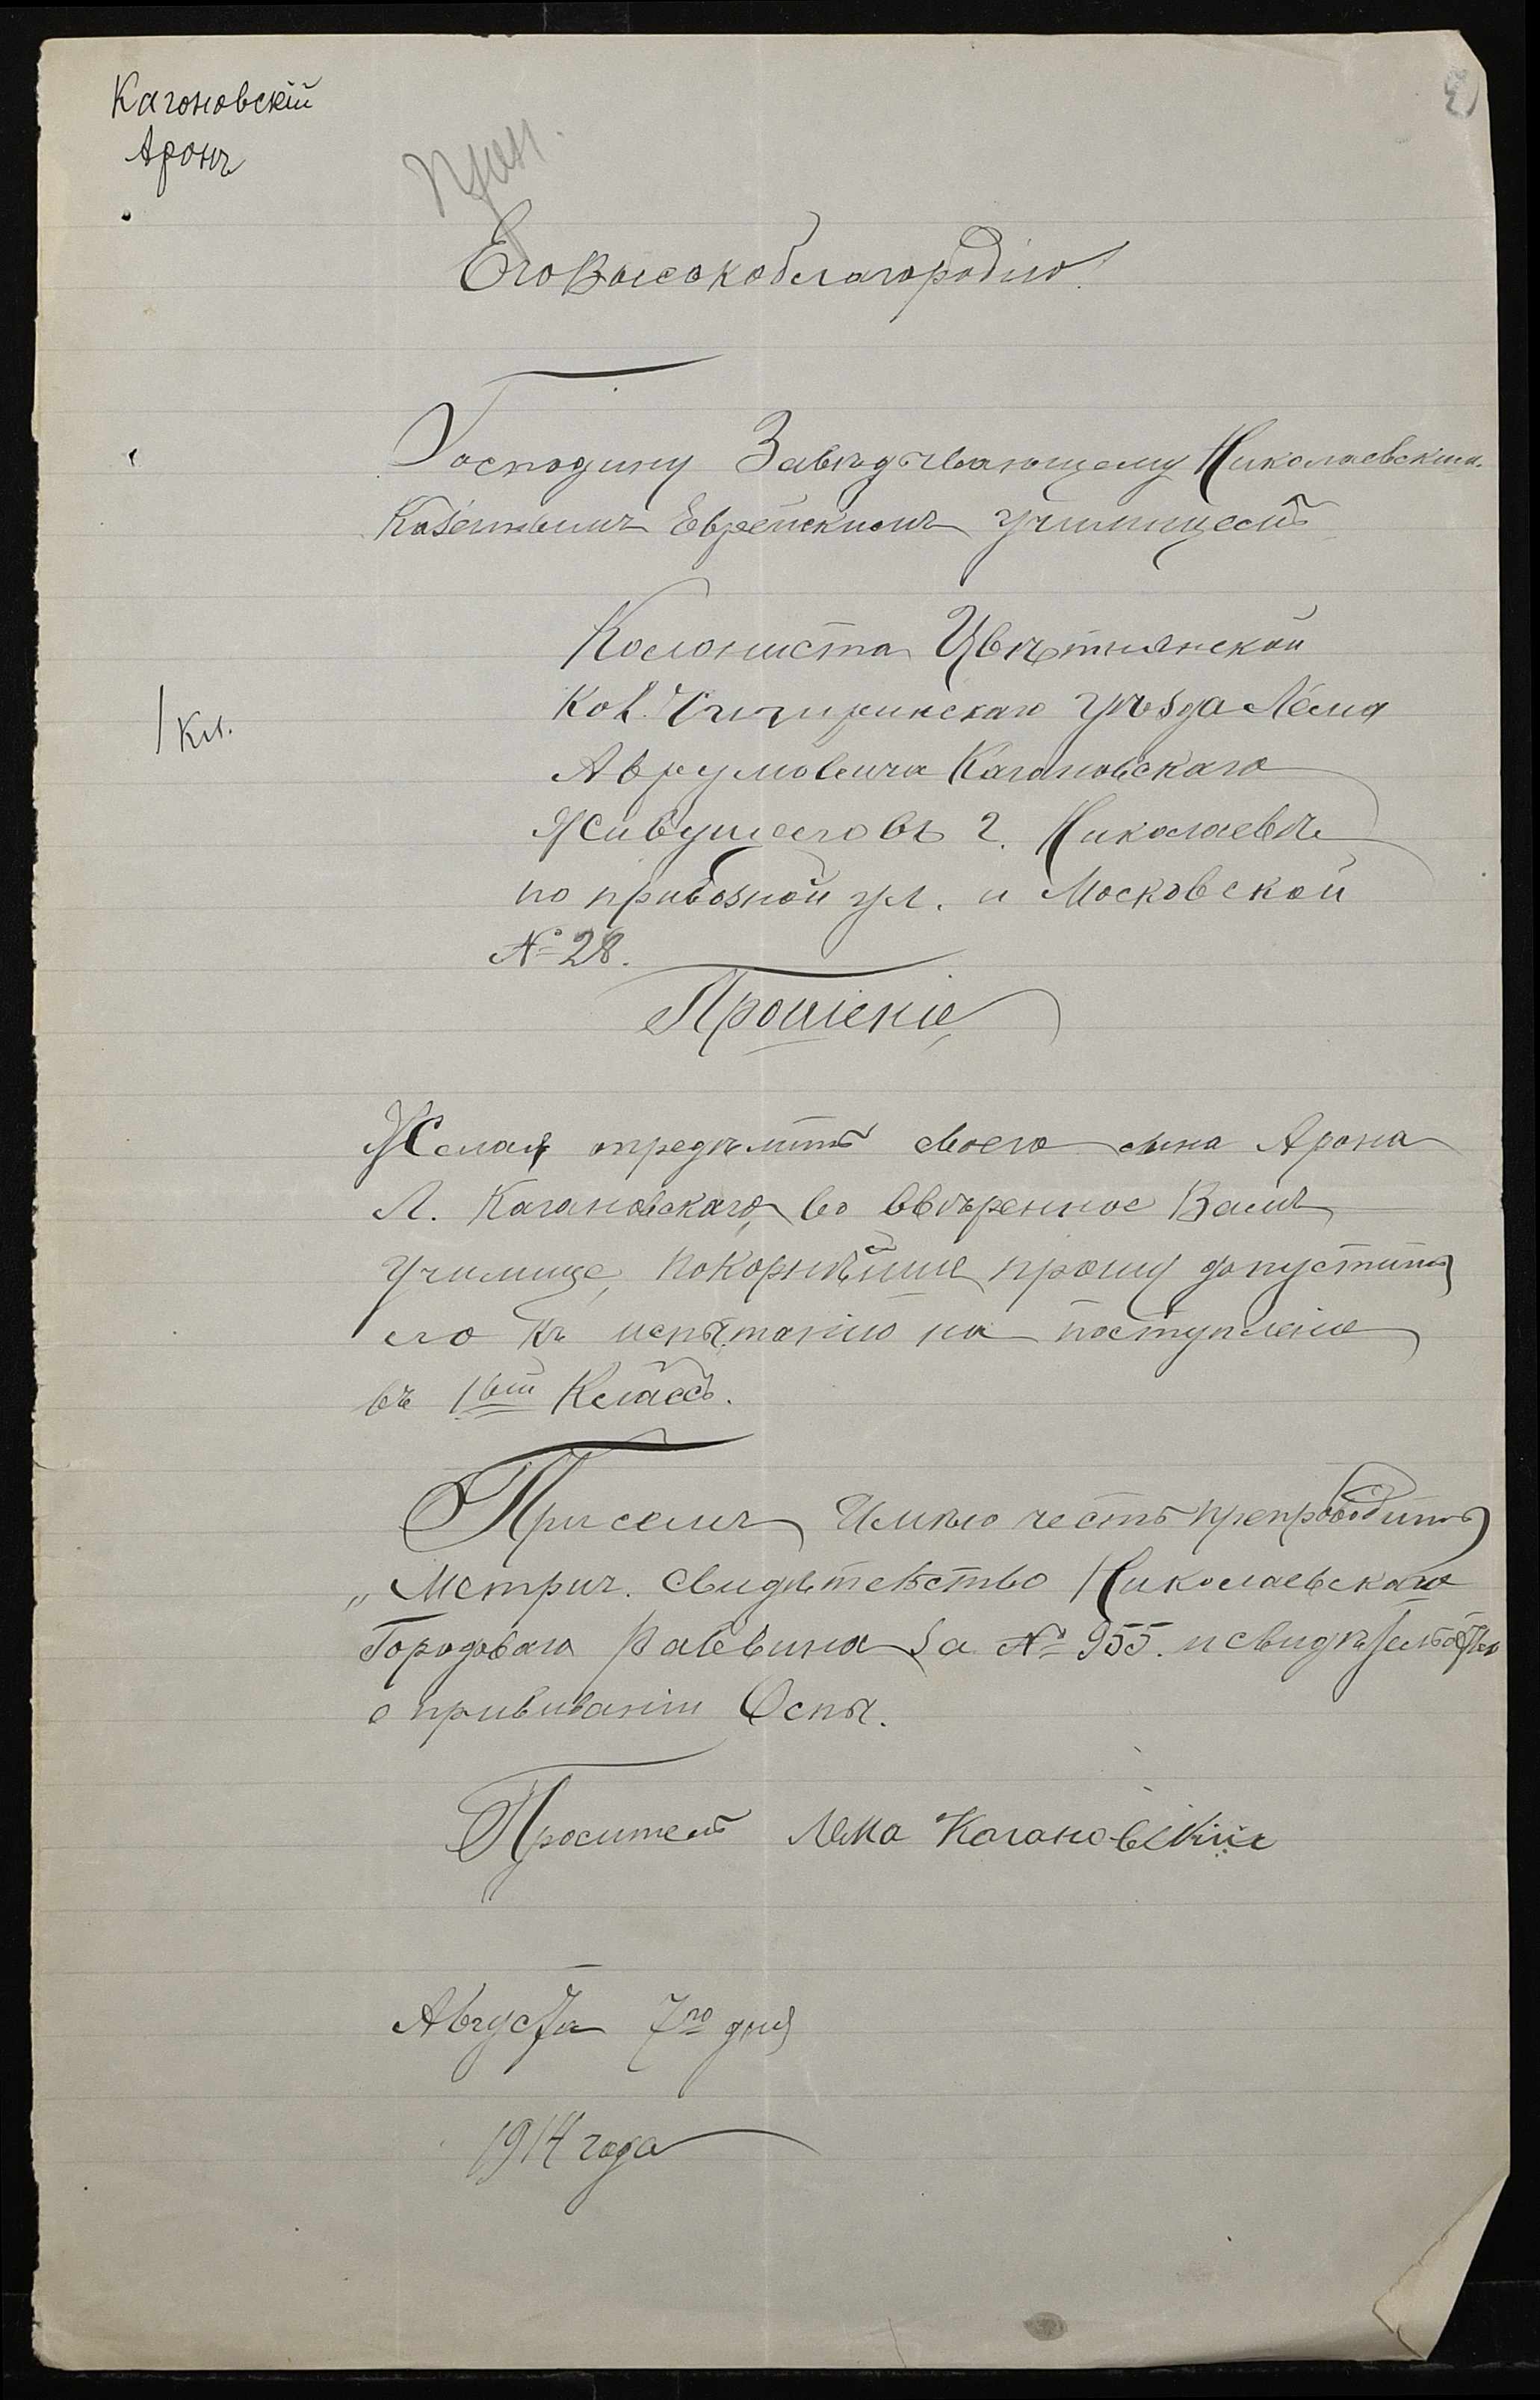 Кагоновскій
Аронъ
прин.
Его Высокоблагородію!
Господину Завѣдывающему Николаевским.
Казеннымъ Еврейскимъ училищемъ
Колониста Цвѣтнянской
Кол. Чигиринскаго уѣзда Лёма
Аврумовича Кагановскаго
Живущего въ г. Николаевѣ
1 кл.
по привозной ул. и Московской
№ 28.
Прошеніе
Желая опредѣлить своего сына Арона
Л. Кагановскаго, во ввѣренное Вамъ
училище, покорнѣйше прошу допустить
его къ испытанію на поступленіе
въ 1вый Классъ.
При семъ Имѣю честь препроводить
„ Метрич. свидѣтельство Николаевскаго
Городоваго Раввина за № 955. и свидѣтельство
о прививаніи Оспы.
Проситель Лёма Кагановскій
Августа 7го дня
1914 года